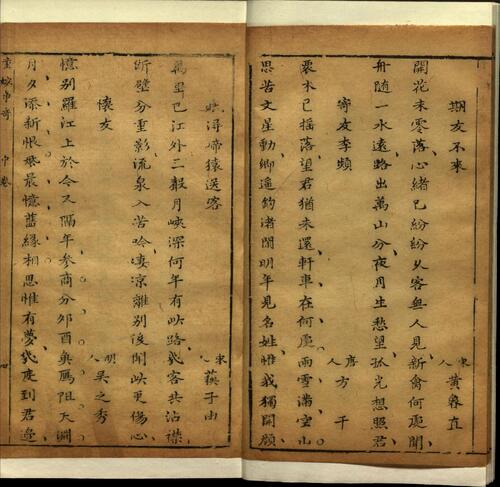 期友不來
宋人 黃魯直
開花未零落心緒已紛紛久客無人見新禽何處聞
舟隨一水遠路出萬山分夜月生愁望孤光想照君
寄友李頻
唐人 方干
衆木已搖落望君猶未還軒車在何處雨雪滿空山
思苦文星動鄉遙釣渚閒明年見名姓惟我獨開顏
峽中聞猿送客
宋人 蘇子由
萬里巴江外三聲月峽深何年有此路幾客共沾襟
斷壁分垂影流泉入苦吟凄涼離別後聞此更傷心
懷友
明人 吳之秀
憶别羅江上於今又隔年參商分卯酉魚鴈阻天淵
月夕添新恨 最憶舊緣相思惟有夢幾度到君邊
中卷